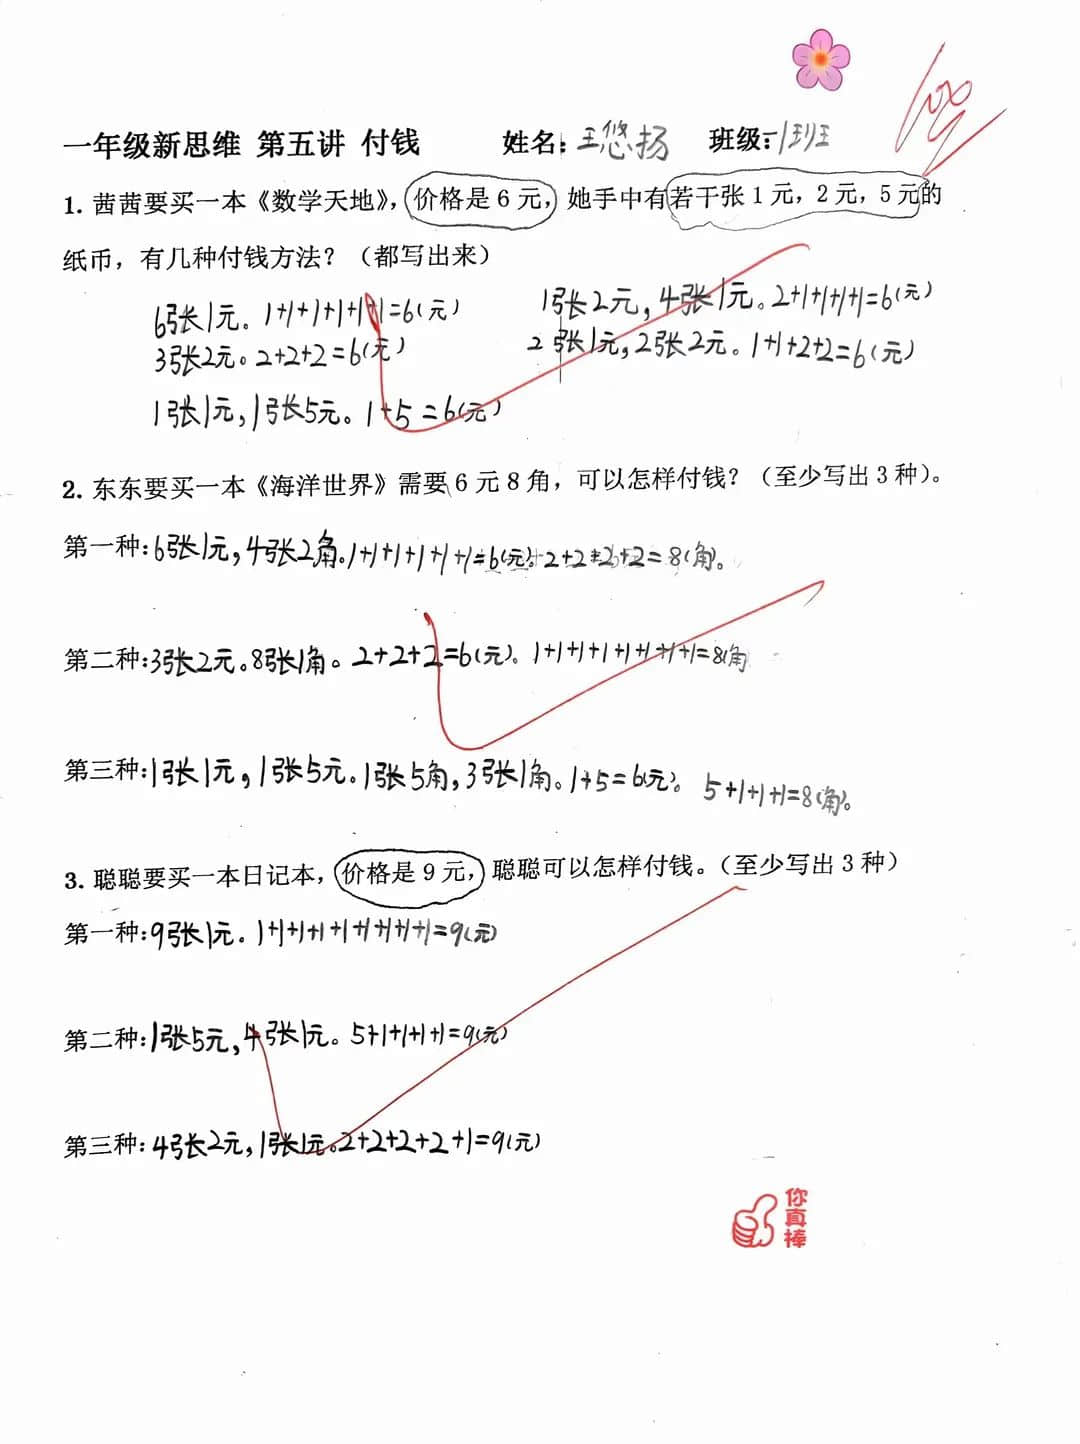 100
一年级新思维 第五讲 付钱 姓名:王悠扬 班级:一1班
1. 茜茜要买一本《数学天地》，价格是6元，她手中有若干张1元，2元，5元的
纸币，有几种付钱方法？（都写出来）
6张1元。1+1+1+1+1+1=6(元) 1张2元,4张1元。2+1+1+1+1=6(元)
3张2元。2+2+2=6(元) 2张1元,2张2元。1+1+2+2=6(元)
1张1元,1张5元。1+5=6(元)
2. 东东要买一本《海洋世界》需要6元8角，可以怎样付钱？（至少写出3种）。
第一种:6张1元,4张2角。1+1+1+1+1+1=6(元)。2+2+2+2=8(角)。
第二种:3张2元。8张1角。2+2+2=6(元)。1+1+1+1+1+1+1+1=8(角
第三种:1张1元,1张5元。1张5角,3张1角。1+5=6(元)。5+1+1+1=8(角)。
3. 聪聪要买一本日记本，价格是9元，聪聪可以怎样付钱。（至少写出3种）
第一种:9张1元。1+1+1+1+1+1+1+1+1=9(元)
第二种:1张5元,4张1元。5+1+1+1+1=9(元)
第三种:4张2元,1张1元。2+2+2+2+1=9(元)
你真棒